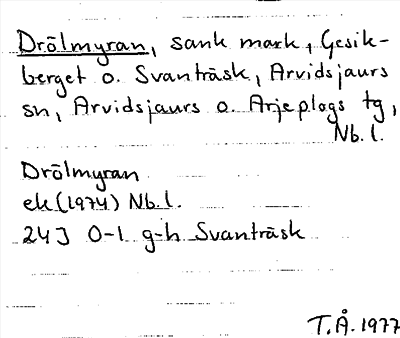 Drölmyran, sank mark, Gesik-
berget o. Svanträsk, Arvidsjaurs
sn, Arvidsjaurs o. Arjeplogs tg,
Nb. l.
Drölmyran
ek (1974) Nb. l.
24J 0-1 g-h Svanträsk
T.Å. 1977